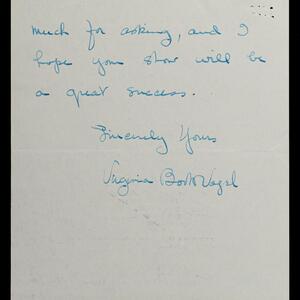 much for asking, and I
hope your show will be
a great success.
Sincerely Yours
Virginia